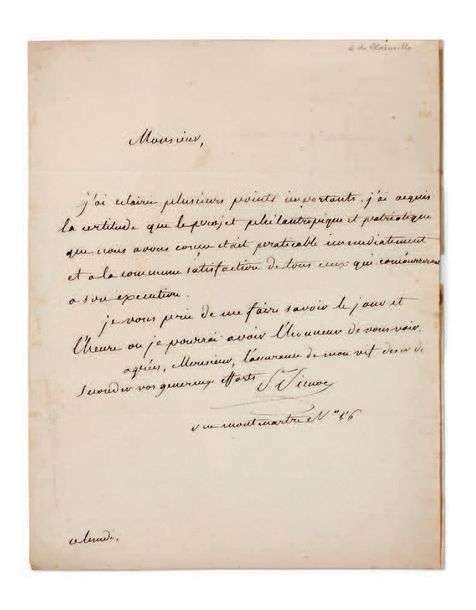 Monsieur,
j'ai eclairé plusieurs points importants. j'ai acquis
la certitude que le projet philantropique et patriotique
que nous avons conçu etait praticable immediatement
et a la commune satisfaction de tous ceux qui concourreront
a son execution.
je vous prie de me faire savoir le jour et
l'heure ou je pourrai avoir l'honneur de vous voir.
agréez, Monsieur, l'assurance de mon vif desir de
seconder vos genereux efforts
rue montmartre N°
ce lundi.